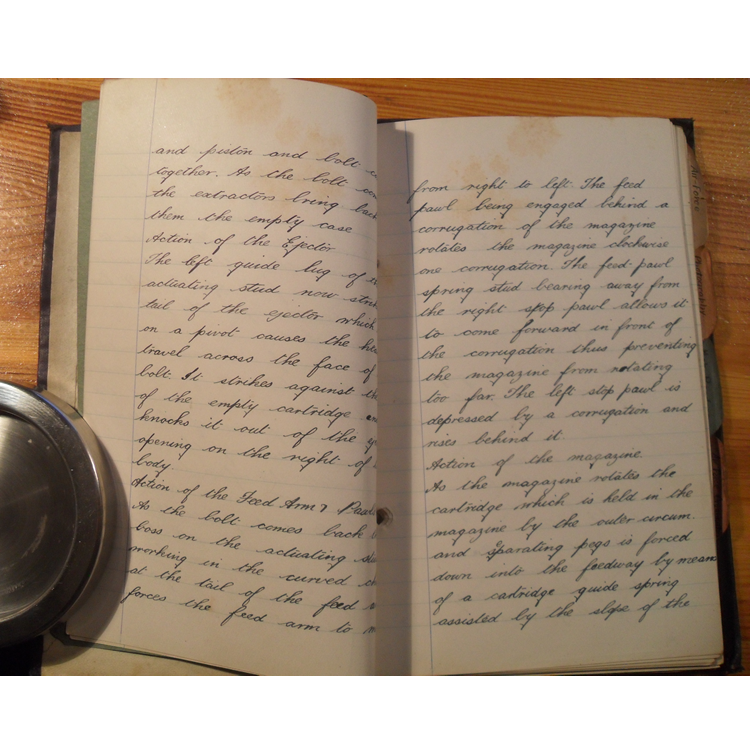 and piston and bolt
together. As the bolt
the extractors bring
them the empty case
Action of the Ejector
The left guide lug of
actuating stud now
tail of the ejector which
on a pivot causes the
travel across the face of
bolt. It strikes against
of the empty cartridge
knocks it out of the
opening on the right of
body.
Action of the Feed Arm &
As the bolt comes back
boss on the actuating
working in the curved
at the tail of the feed
forces the feed arm to
from right to left. The feed
pawl being engaged behind a
corrugation of the magazine
rotates the magazine clockwise
one corrugation. The feed pawl
spring stud bearing away from
the right stop pawl allows it
to come forward in front of
the corrugation thus preventing
the magazine from rotating
too far. The left stop pawl is
depressed by a corrugation and
rises behind it.
Action of the magazine
As the magazine rotates the
cartridge which is held in the
magazine by the outer circum.
and separating pegs is forced
down into the feedway by means
of a cartridge guide spring
assisted by the slope of the